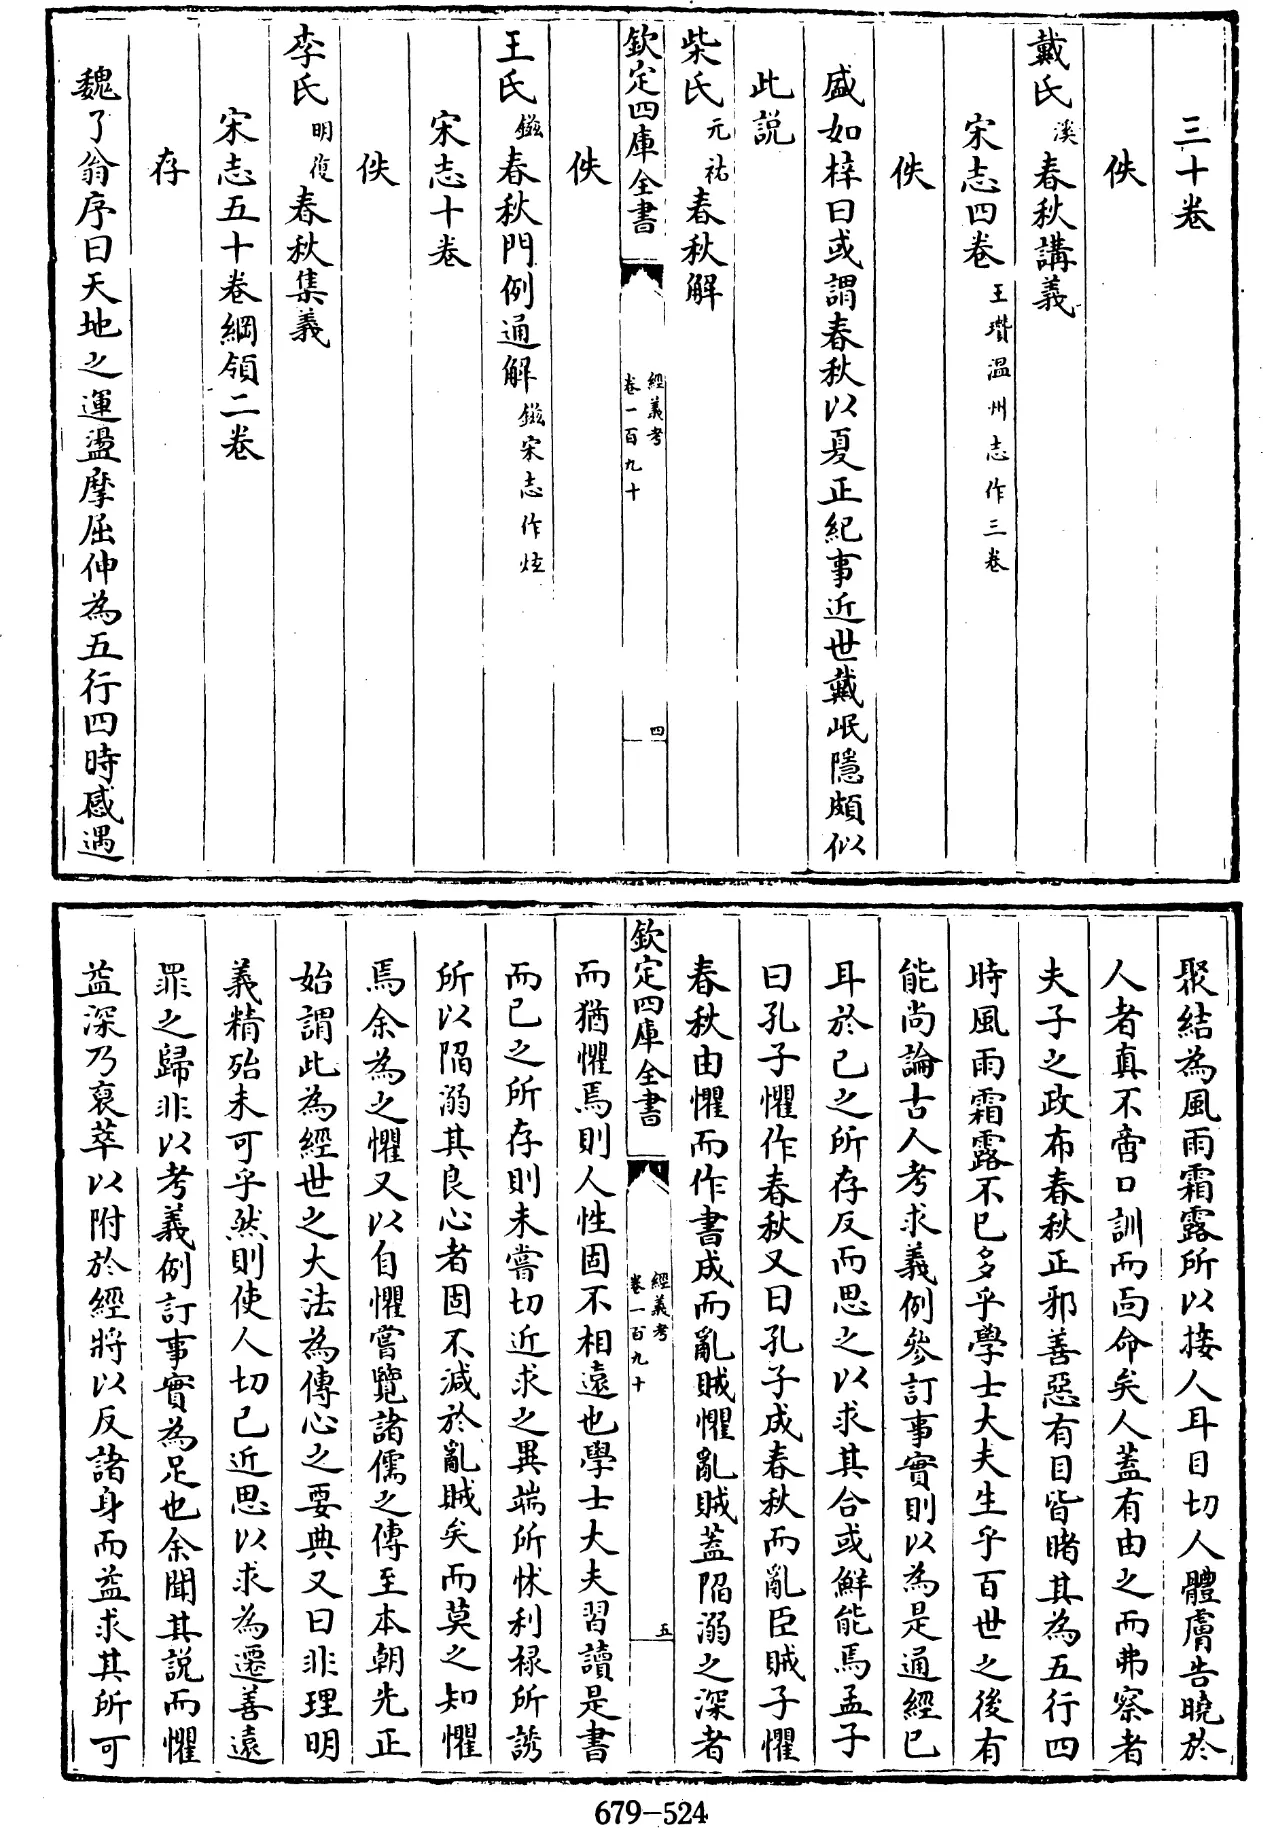 三十卷
佚
戴氏溪春秋講義
宋志四卷王瓚温州志作三卷
佚
盛如梓曰或謂春秋以夏正紀事近世戴岷隱頗似
此説
柴氏元祐春秋解
欽定四庫全書
經義考
卷一百九十
四
佚
王氏鎡春秋門例通解鎡宋志作炫
宋志十卷
佚
李氏明復春秋集義
宋志五十卷綱領二卷
存
魏了翁序曰天地之運盪摩屈伸為五行四時感遇
聚結為風雨霜露所以接人耳目切人體膚告曉於
人者真不啻口訓而面命矣人蓋有由之而弗察者
夫子之政布春秋正邪善惡有目皆睹其為五行四
時風雨霜露不已多乎學士大夫生乎百世之後有
能尚論古人考求義例參訂事實則以為是通經已
耳於己之所存反而思之以求其合或鮮能焉孟子
曰孔子懼作春秋又曰孔子成春秋而亂臣賊子懼
春秋由懼而作書成而亂賊懼亂賊蓋陷溺之深者
欽定四庫全書
經義考
卷一百九十
五
而猶懼焉則人性固不相遠也學士大夫習讀是書
而已之所存則未嘗切近求之異端所怵利祿所誘
所以陷溺其良心者固不減於亂賊矣而莫之知懼
焉余為之懼又以自懼嘗覽諸儒之傳至本朝先正
始謂此為經世之大法為傳心之要典又曰非理明
義精殆未可乎然則使人切己近思以求為遷善遠
罪之歸非以考義例訂事實為足也余聞其説而懼
益深乃裒萃以附於經將以反諸身而益求其所可
679-524